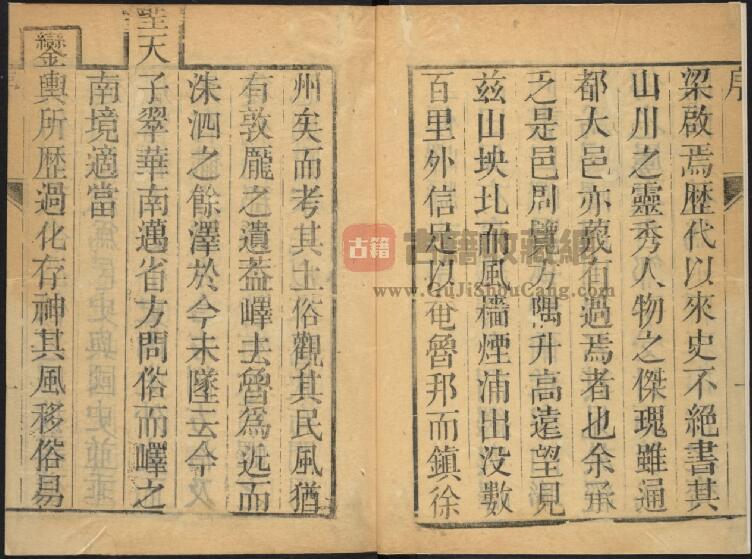 序
梁啟焉歷代以來史不絕書其
山川之靈秀人物之傑瑰雖通
都大邑亦蔑有過焉者也余承
之是邑問境方隅升高遠望見
兹山坱圠而風檣煙浦出没數
百里外信足以奄魯邦而鎮徐
州矣而考其土俗觀其民風猶
有敦龎之遺葢嶧去魯爲近而
洙泗之餘澤於今未墜云今
聖天
子翠華南邁省方問俗而嶧之
南境適當
鑾輿所歷過化存神其風移俗易
古籍
古籍收藏網
www.GuJiShouCang.com